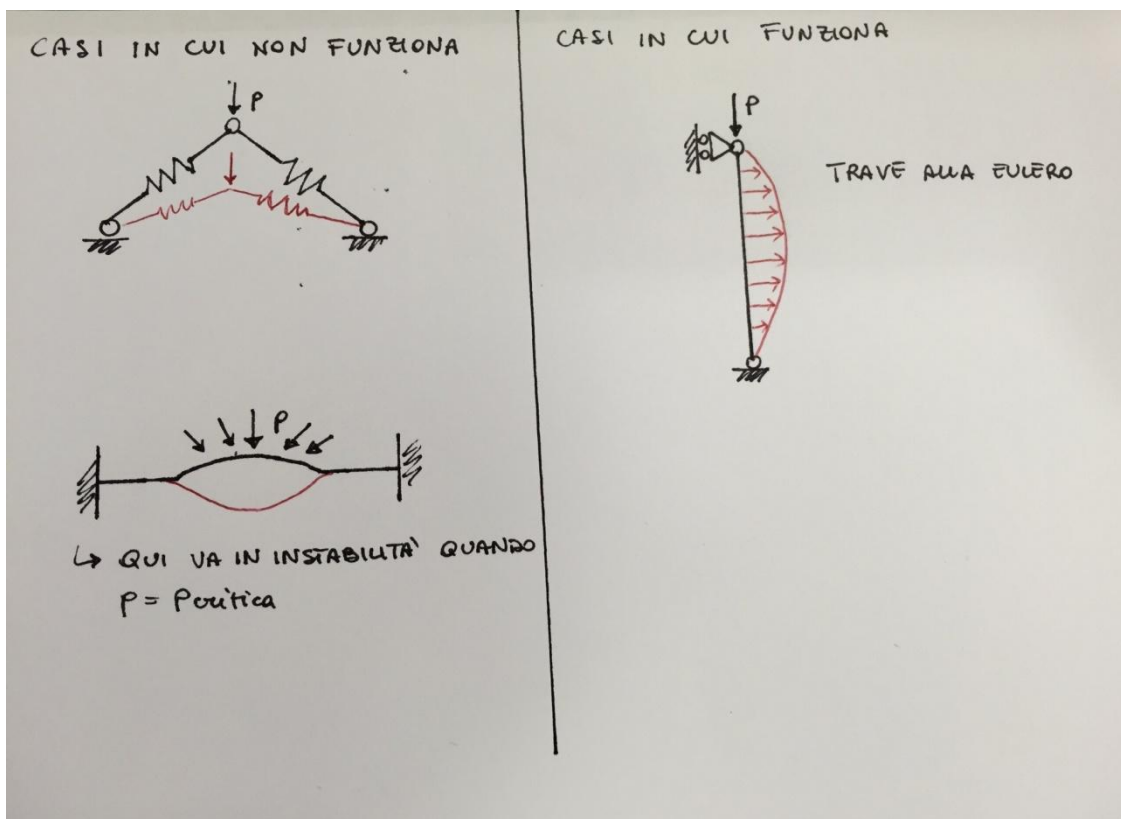 CASI IN CUI NON FUNZIONA
P
P
↳ QUI VA IN INSTABILITÀ QUANDO
P = Pcritica
CASI IN CUI FUNZIONA
P
TRAVE ALLA EULERO